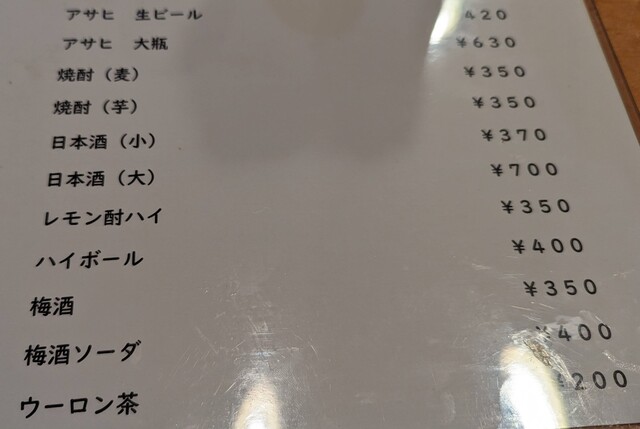 アサヒ 生ビール 420
アサヒ 大瓶 ¥630
焼酎（麦） ¥350
焼酎（芋） ¥350
日本酒（小） ¥370
日本酒（大） ¥700
レモン酎ハイ ¥350
ハイボール ¥400
梅酒 ¥350
梅酒ソーダ ¥400
ウーロン茶 ¥200